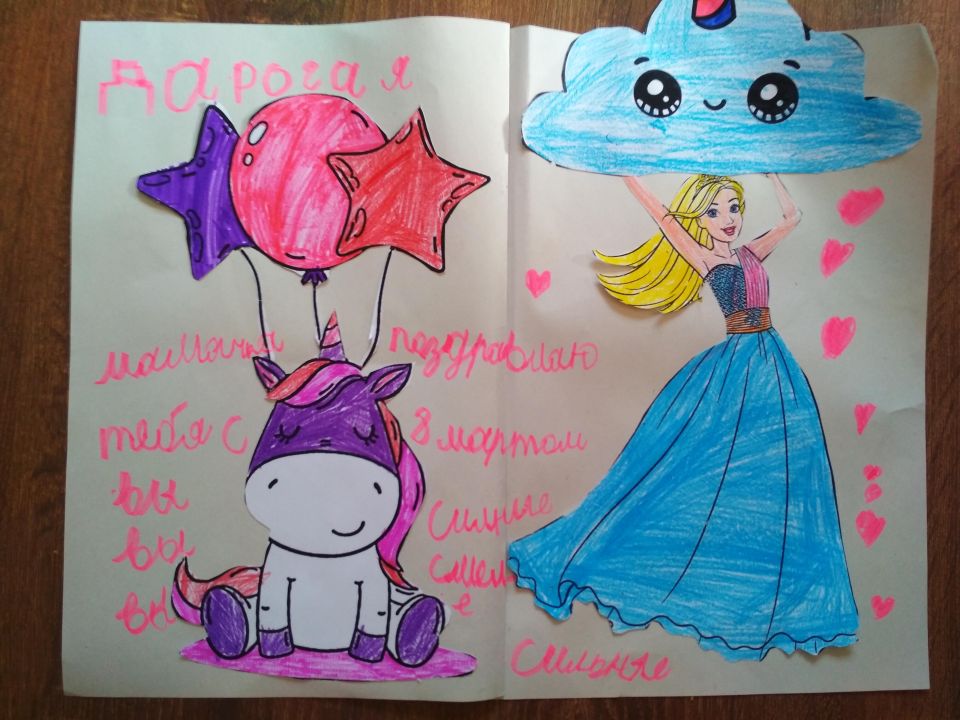 Дарогая
мамачка поздравляю
тебя с 8 мартом
вы
вы силние
вы смелые
сильные